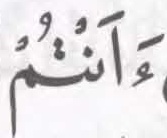 ءَاَنْتُمْ